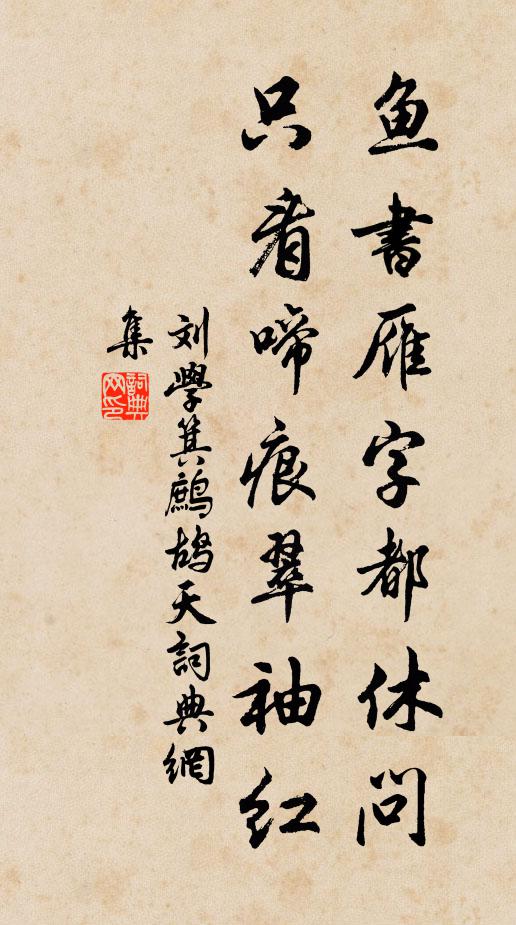 鱼書雁字都休問
只看啼痕翠袖红
刘學箕鷓鴣天詞典網
集
詞典
网印